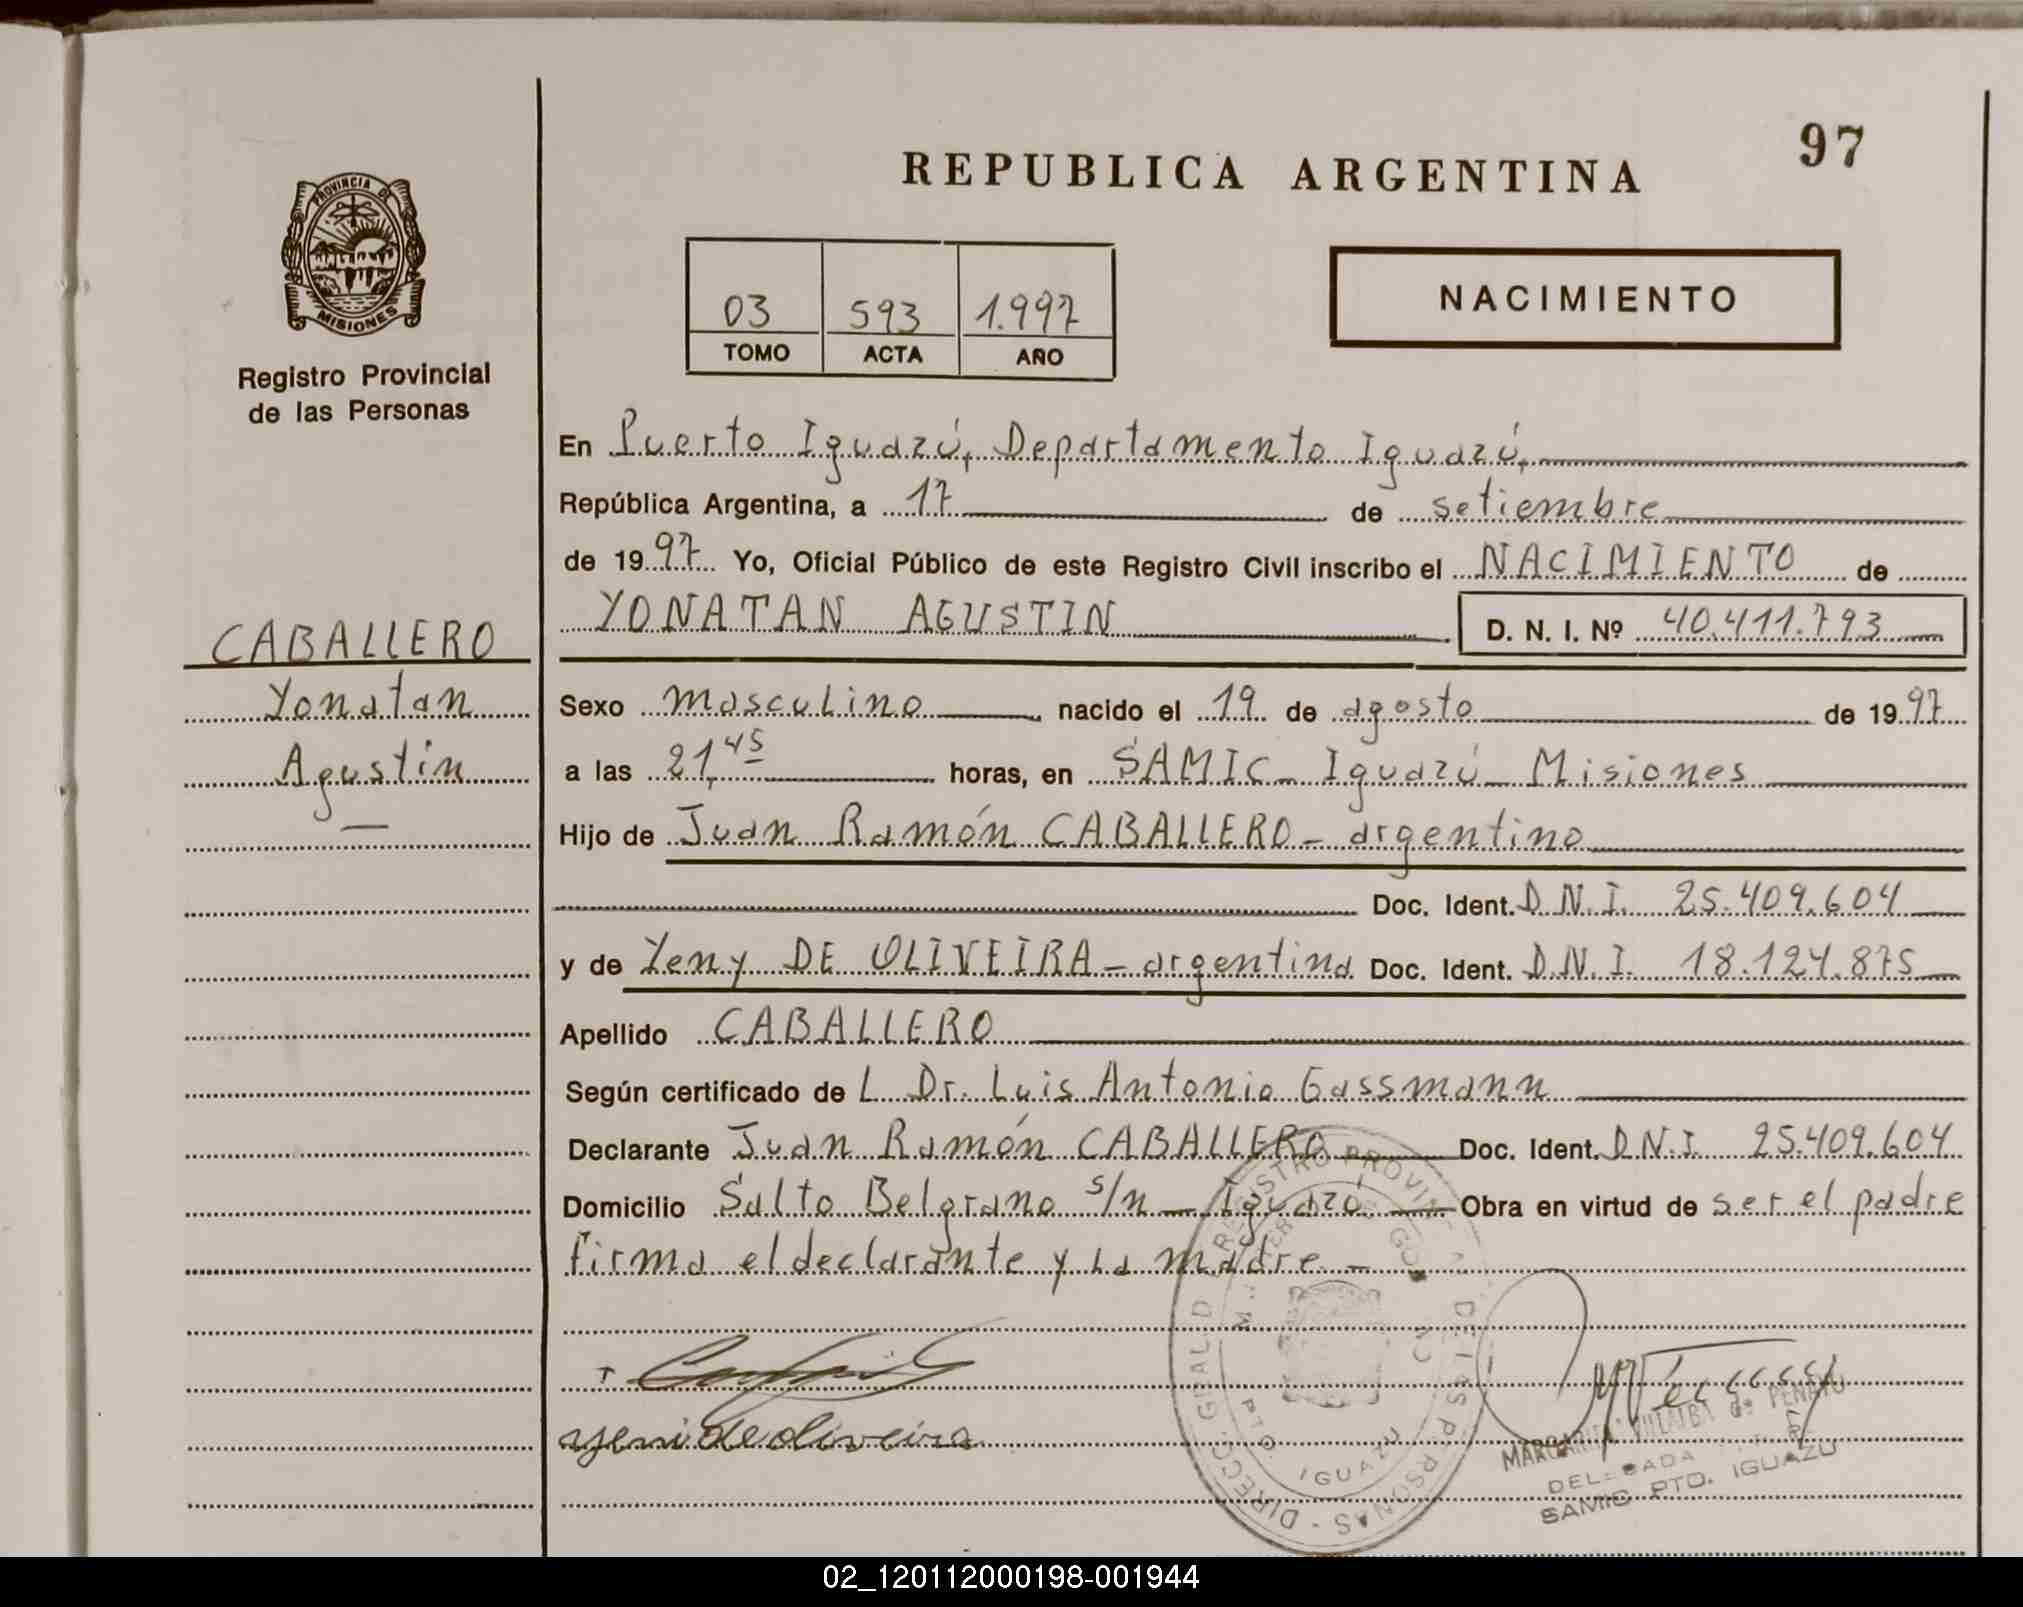 97
REPUBLICA ARGENTINA
PROVINCIA DE
MISIONES
Registro Provincial
de las Personas
NACIMIENTO
03 593 1.997
TOMO ACTA AÑO
En Puerto Iguazú, Departamento Iguazú,
República Argentina, a 17 de setiembre
de 1997 Yo, Oficial Público de este Registro Civil inscribo el NACIMIENTO de
YONATAN AGUSTIN D. N. I. Nº 40.411.793
CABALLERO
Yonatan
Agustín
Sexo masculino nacido el 19 de agosto de 1997
a las 21,45 horas, en SAMIC - Iguazú - Misiones
Hijo de Juan Ramón CABALLERO - argentino
Doc. Ident. D.N.I. 25.409.604
y de Yeny DE OLIVEIRA - argentina Doc. Ident. D.N.I. 18.124.875
Apellido CABALLERO
Según certificado de L Dr. Luis Antonio Gassmann
Declarante Juan Ramón CABALLERO Doc. Ident. D.N.I. 25.409.604
Domicilio Salto Belgrano s/n - Iguazú - Obra en virtud de ser el padre
firma el declarante y la madre -
yeni de oliveira
REGISTRO PROVIN DE LAS PERSONAS - DIRECC. GRAL. D
PTO. IGUAZU
MARGARITA VILLALBA de PENAYO
DELEGADA
SAMIC PTO. IGUAZU
02_120112000198-001944